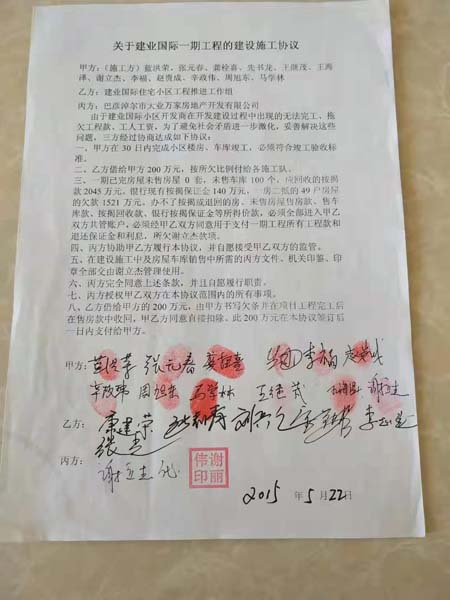 关于建业国际一期工程的建设施工协议
甲方：（施工方）蓝洪荣、张元春、龚栓喜、先书龙、王继茂、王海
泽、谢立杰、李福、赵贵成、辛政伟、周旭东、马学林
乙方：建业国际住宅小区工程推进工作组
丙方：巴彦淖尔市大业万家房地产开发有限公司
由于建业国际小区开发商在开发建设过程中出现的无法完工、拖
欠工程款、工人工资，为了避免社会矛盾进一步激化，妥善解决这些
问题，三方经过协商达成如下协议：
一、甲方在 30 日内完成小区楼房、车库竣工，必须符合竣工验收标
准。
二、乙方借给甲方 200 万元，按所欠比例付给各施工队。
三、一期已完房屋未售房屋 0 套，未售车库 100 个，应回收的按揭
款 2045 万元，银行现有按揭保证金 140 万元，一房二抵的 49 户房屋
的欠款 1521 万元，办不了按揭或退回的房、未售房屋售房款、售车
库款、按揭回收款、银行按揭保证金等所得价款，必须全部进入甲乙
双方共管账户，必须经甲乙双方同意用于支付一期工程所有工程款和
退还保证金和利息，所欠谢立杰款项。
四、丙方协助甲乙方履行本协议，并自愿接受甲乙双方的监管。
五、在建设施工中及房屋车库销售中所需的丙方文件、机关印鉴、印
章全部交由谢立杰管理使用。
六、丙方完全同意上述条款，并且自愿履行职责。
七、丙方授权甲乙双方在本协议范围内的所有事项。
八、乙方借给甲方的 200 万元，由甲方书写欠条并在项目工程完工后
在售房款中收回，甲乙方同意直接扣除。此 200 万元在本协议签订后
一日内支付给甲方。
甲方：张元春 李福
辛政伟 周旭东 马学林 王继茂 谢立杰
乙方：康建荣
丙方：谢立杰代
谢丽伟印
2015 年 5 月 22 日